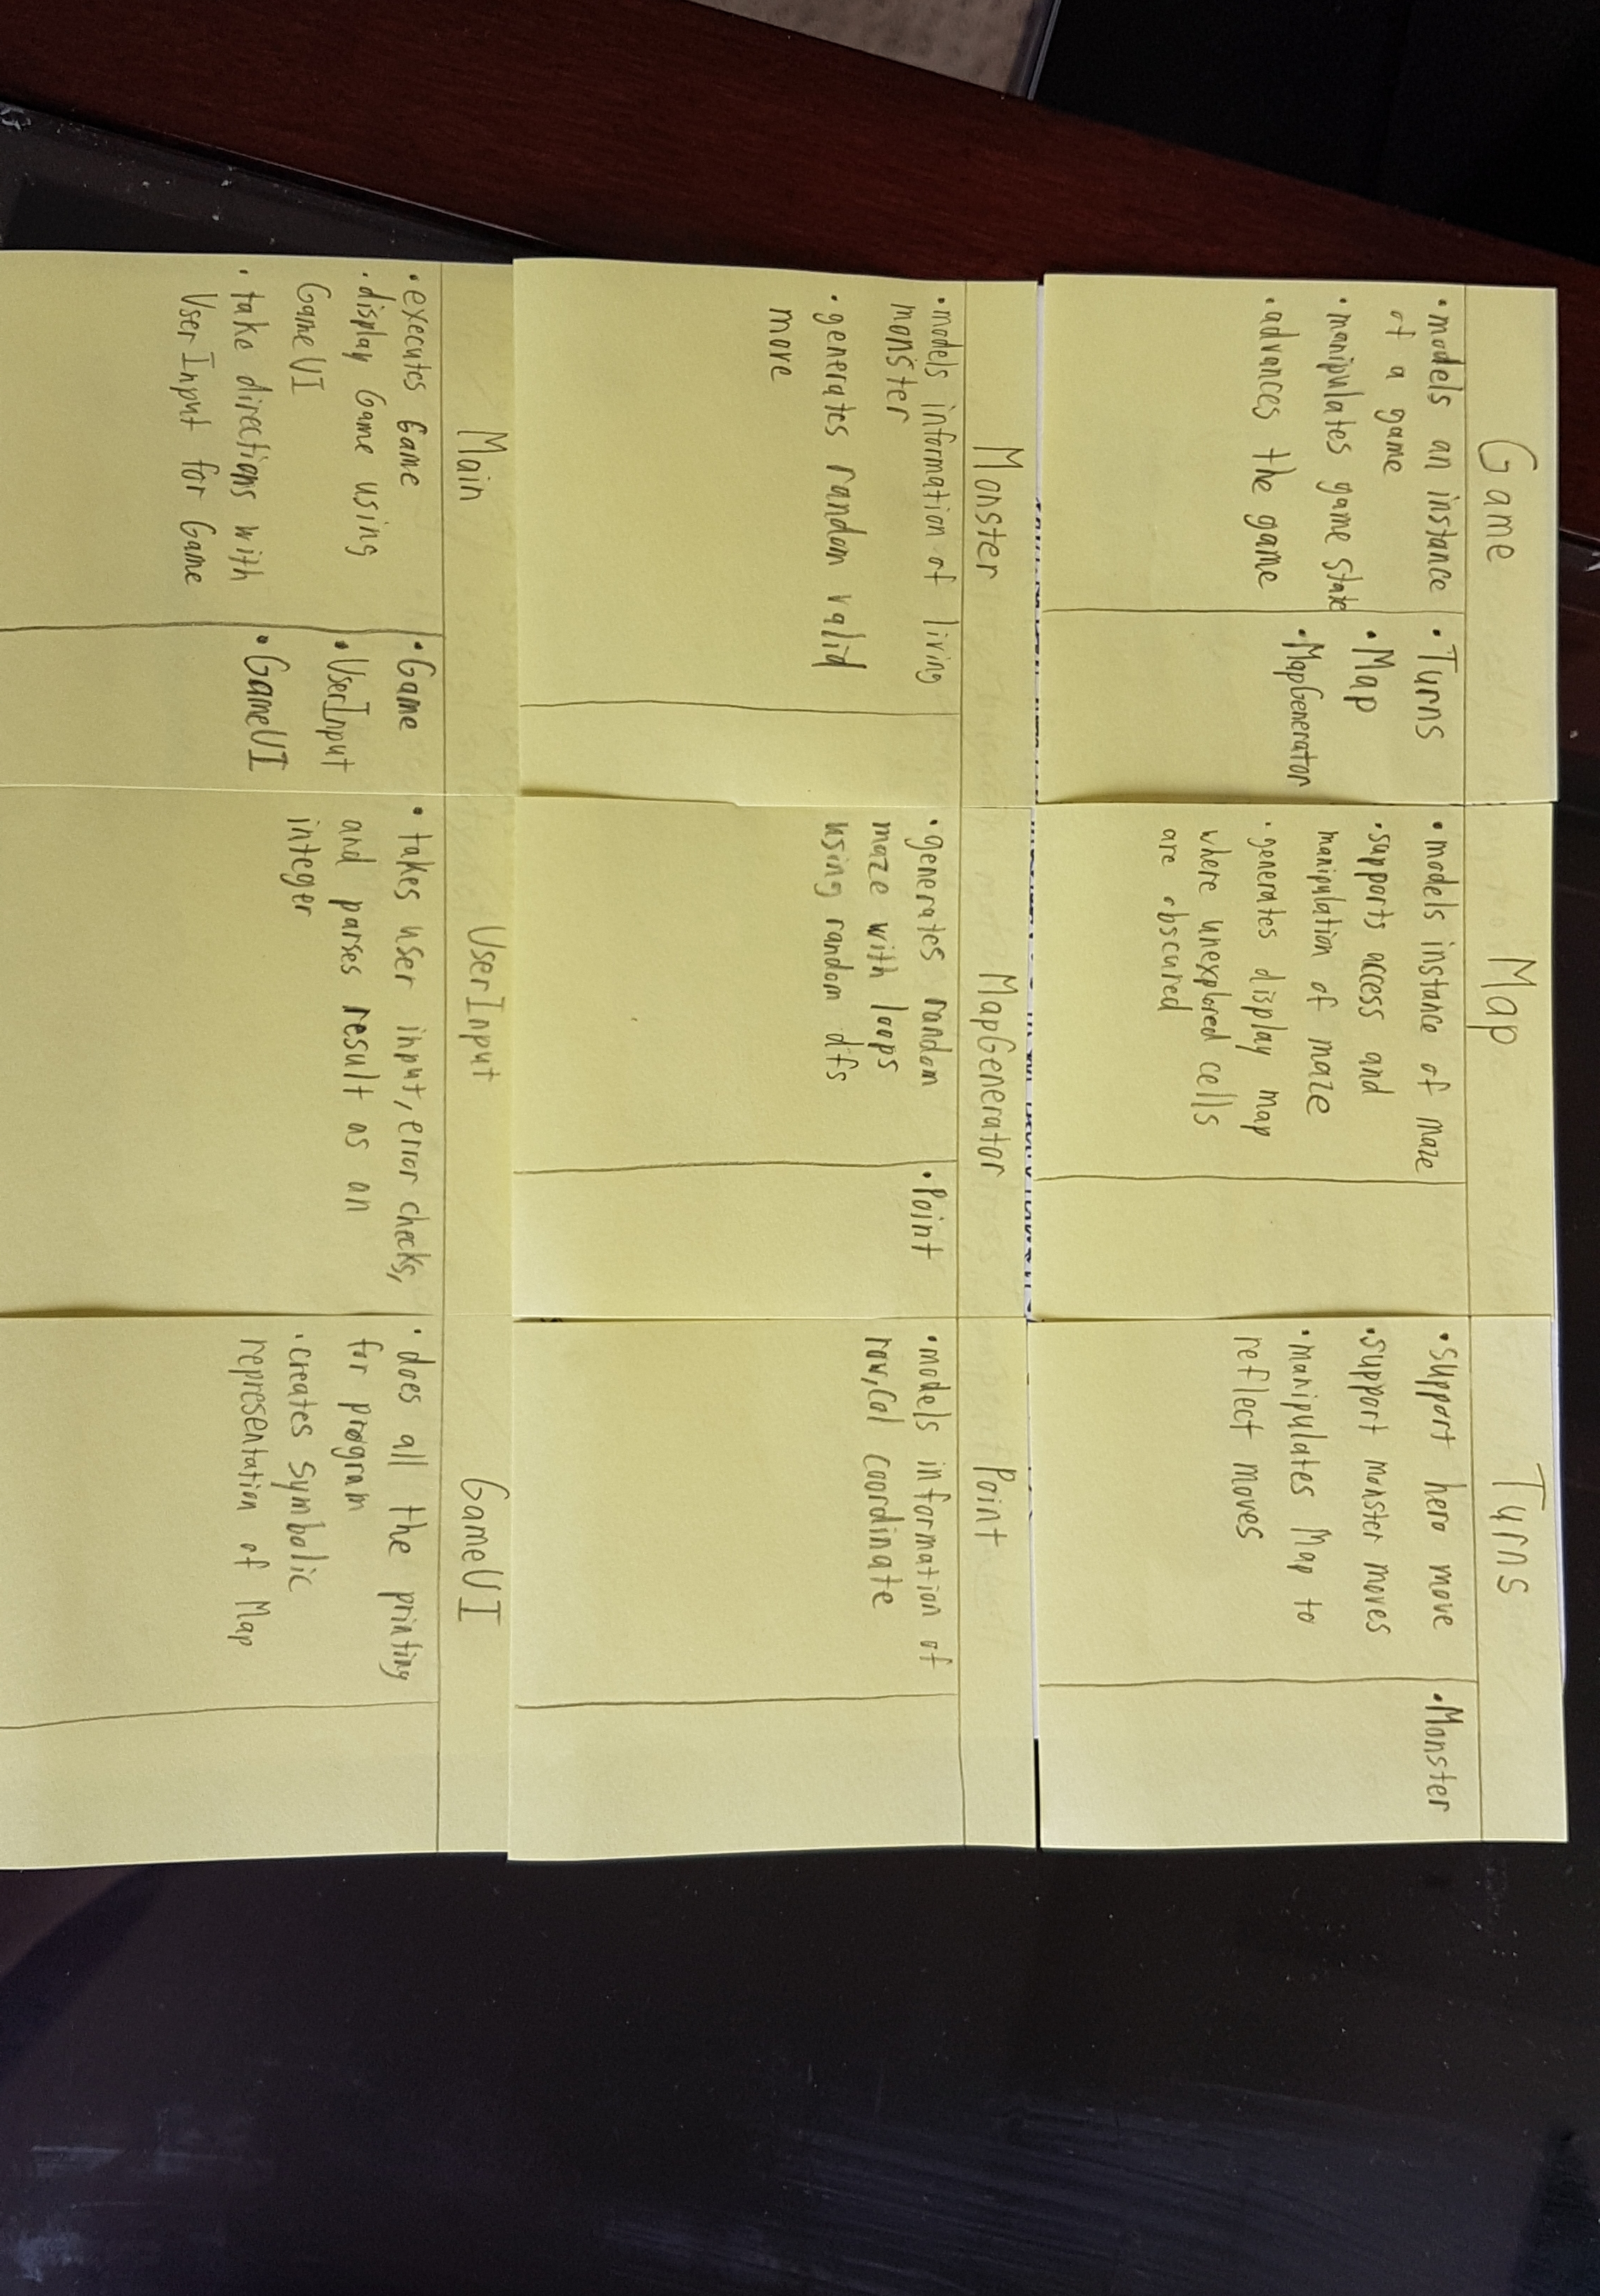 Game
• models an instance
of a game
• manipulates game state
• advances the game
• Turns
• Map
• MapGenerator
Map
• models instance of maze
• supports access and
manipulation of maze
• generates display map
where unexplored cells
are obscured
Turns
• support hero move
• support monster moves
• manipulates Map to
reflect moves
• Monster
Monster
• models information of living
monster
• generates random valid
more
MapGenerator
• generates random
maze with loops
using random dfs
• Point
Point
• models information of
row, col coordinate
Main
• executes Game
• display Game using
GameUI
• take directions with
UserInput for Game
• Game
• UserInput
• GameUI
UserInput
• takes user input, error checks,
and parses result as an
integer
GameUI
• does all the printing
for program
• creates symbolic
representation of Map